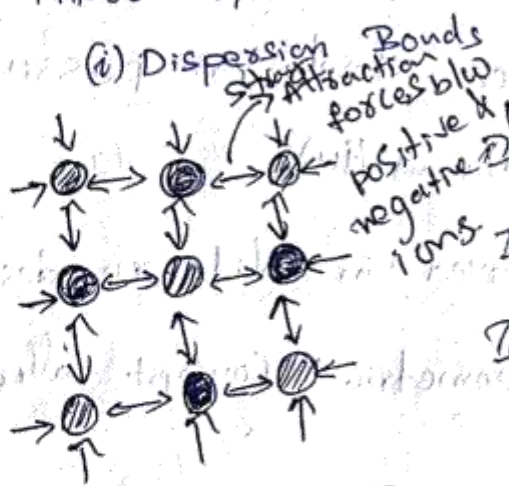 (i) Dispersion Bonds
Strong Attraction
forces b/w
positive &
negative
ions